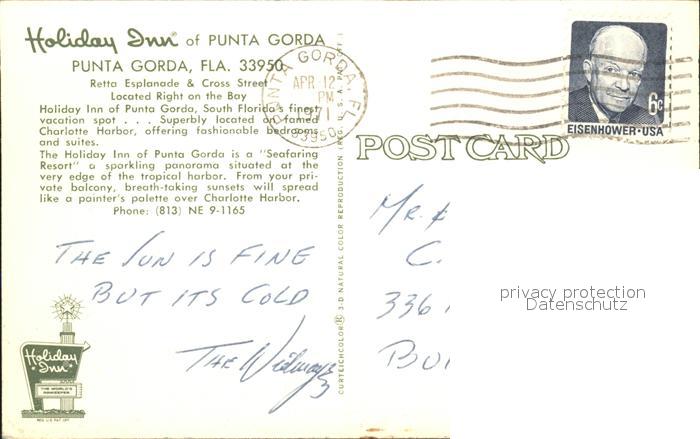 Holiday Inn® of PUNTA GORDA
PUNTA GORDA, FLA. 33950
Retta Esplanade & Cross Street
Located Right on the Bay
Holiday Inn of Punta Gorda, South Florida's finest
vacation spot . . . Superbly located on famed
Charlotte Harbor, offering fashionable bedrooms
and suites.
The Holiday Inn of Punta Gorda is a "Seafaring
Resort" a sparkling panorama situated at the
very edge of the tropical harbor. From your pri-
vate balcony, breath-taking sunsets will spread
like a painter's palette over Charlotte Harbor.
Phone: (813) NE 9-1165
THE SUN IS FINE
BUT ITS COLD
THE
Holiday
Inn
THE WORLD'S
INNKEEPER
REG. U.S. PAT. OFF.
CURTEICHCOLOR® 3-D NATURAL COLOR REPRODUCTION (REG. U.S.A. PAT. OFF.)
PUNTA GORDA, FL
APR 12
PM
33950
6c
EISENHOWER·USA
POST CARD
MR. &
C.
336
BU
privacy protection
Datenschutz